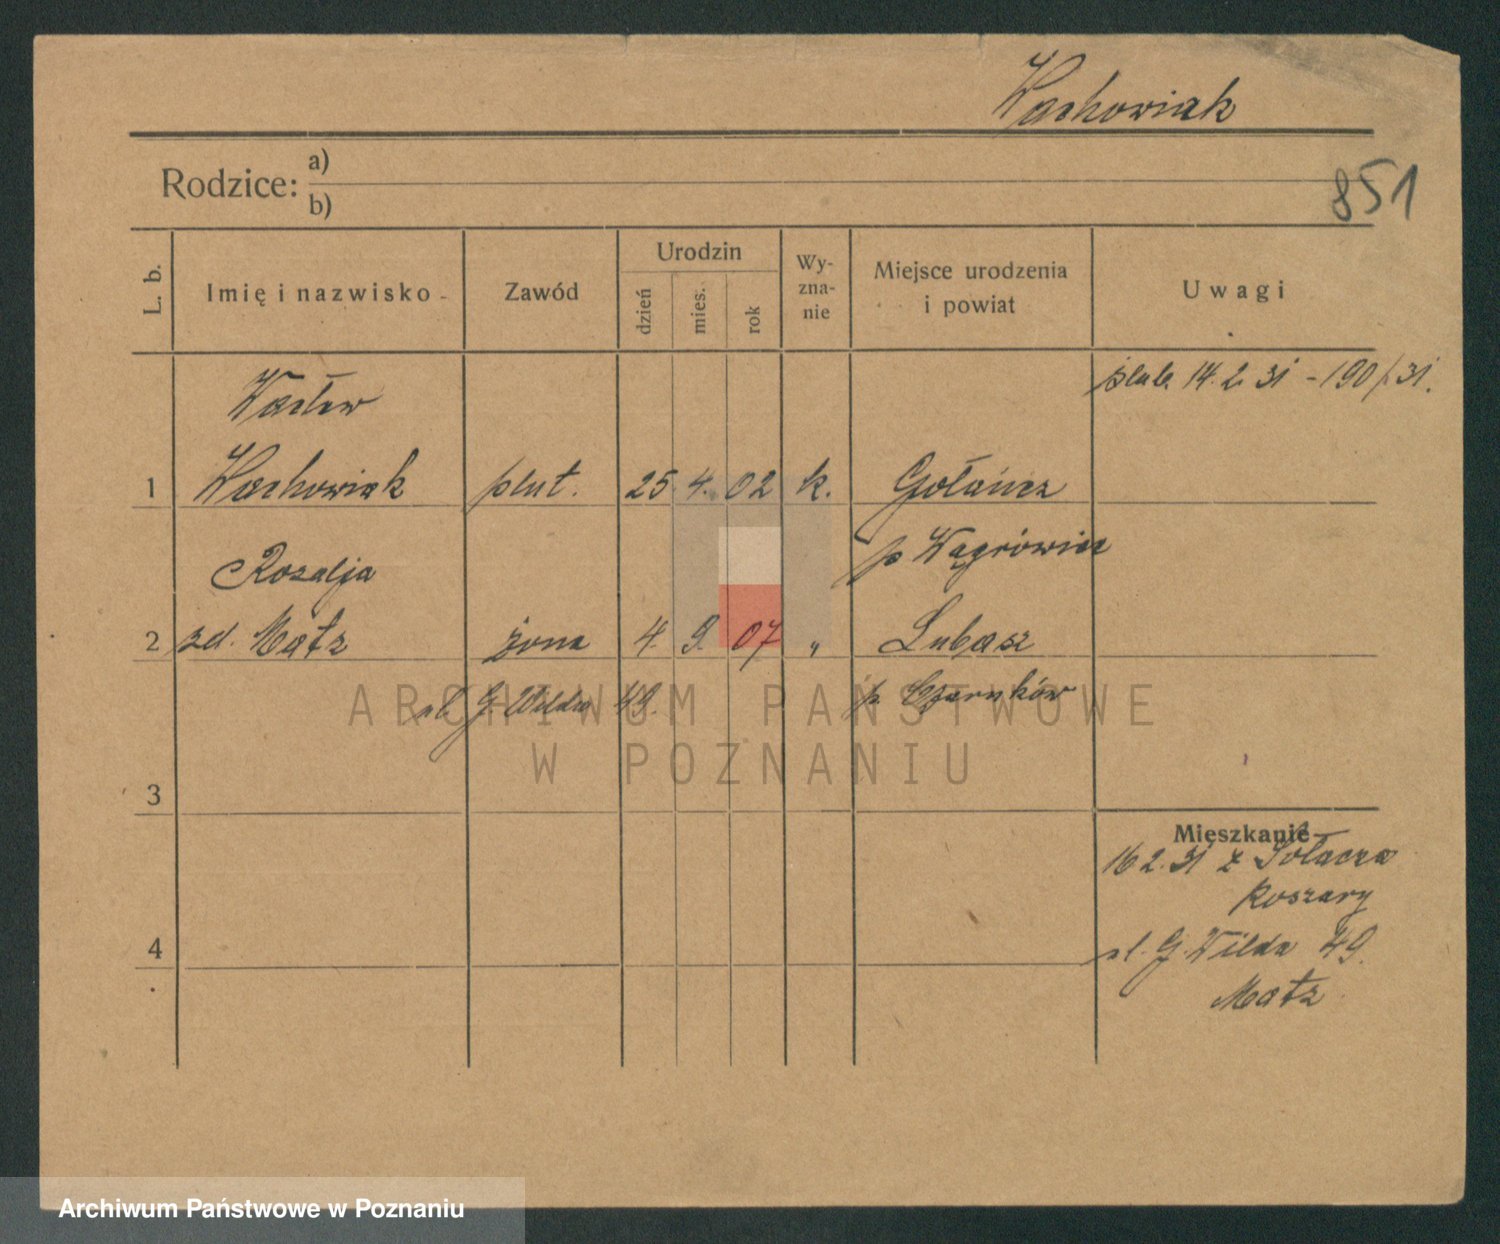 Wachowiak
851
Rodzice: a)
b)
L. b.
Imię i nazwisko
Zawód
Urodzin
dzień
mies.
rok
Wy-
zna-
nie
Miejsce urodzenia
i powiat
Uwagi
ślub. 14. 2. 31 - 190/31.
Wacław
1 Wachowiak plut. 25. 4. 02 k. Gołańcz
p Wągrówiec
Rozalja
2 zd. Matz żona 4. 9. 07 „ Lubasz
ul. G. Wilda 49. p. Czarnków
ARCHIWUM PAŃSTWOWE
W POZNANIU
3
Mieszkanie
16 2. 31 z Sołacza
Koszary
4
ul. G. Wilda 49.
Matz
Archiwum Państwowe w Poznaniu